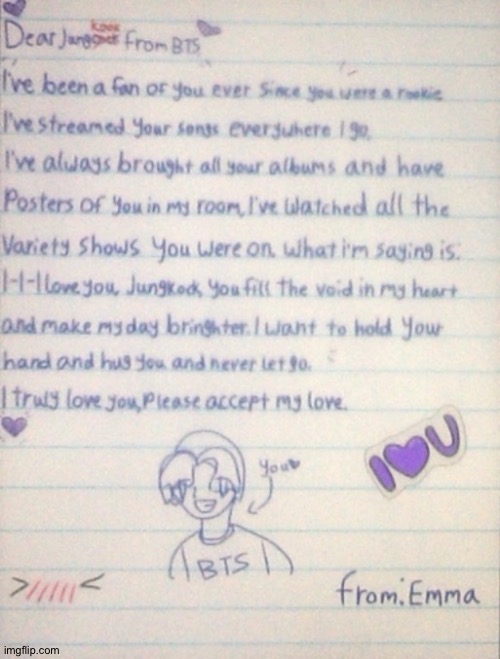 Dear Jungkook from BTS
I've been a fan of you ever since you were a rookie
I've streamed your songs everywhere I go,
I've always brought all your albums and have
Posters of you in my room, I've watched all the
Variety shows you were on. What i'm saying is.
I-I-I love you, Jungkook, you fill the void in my heart
and make my day bringhter. I want to hold your
hand and hug you and never let go.
I truly love you, Please accept my love.
I 💜 U
you
BTS
>/////<
from: Emma
imgflip.com